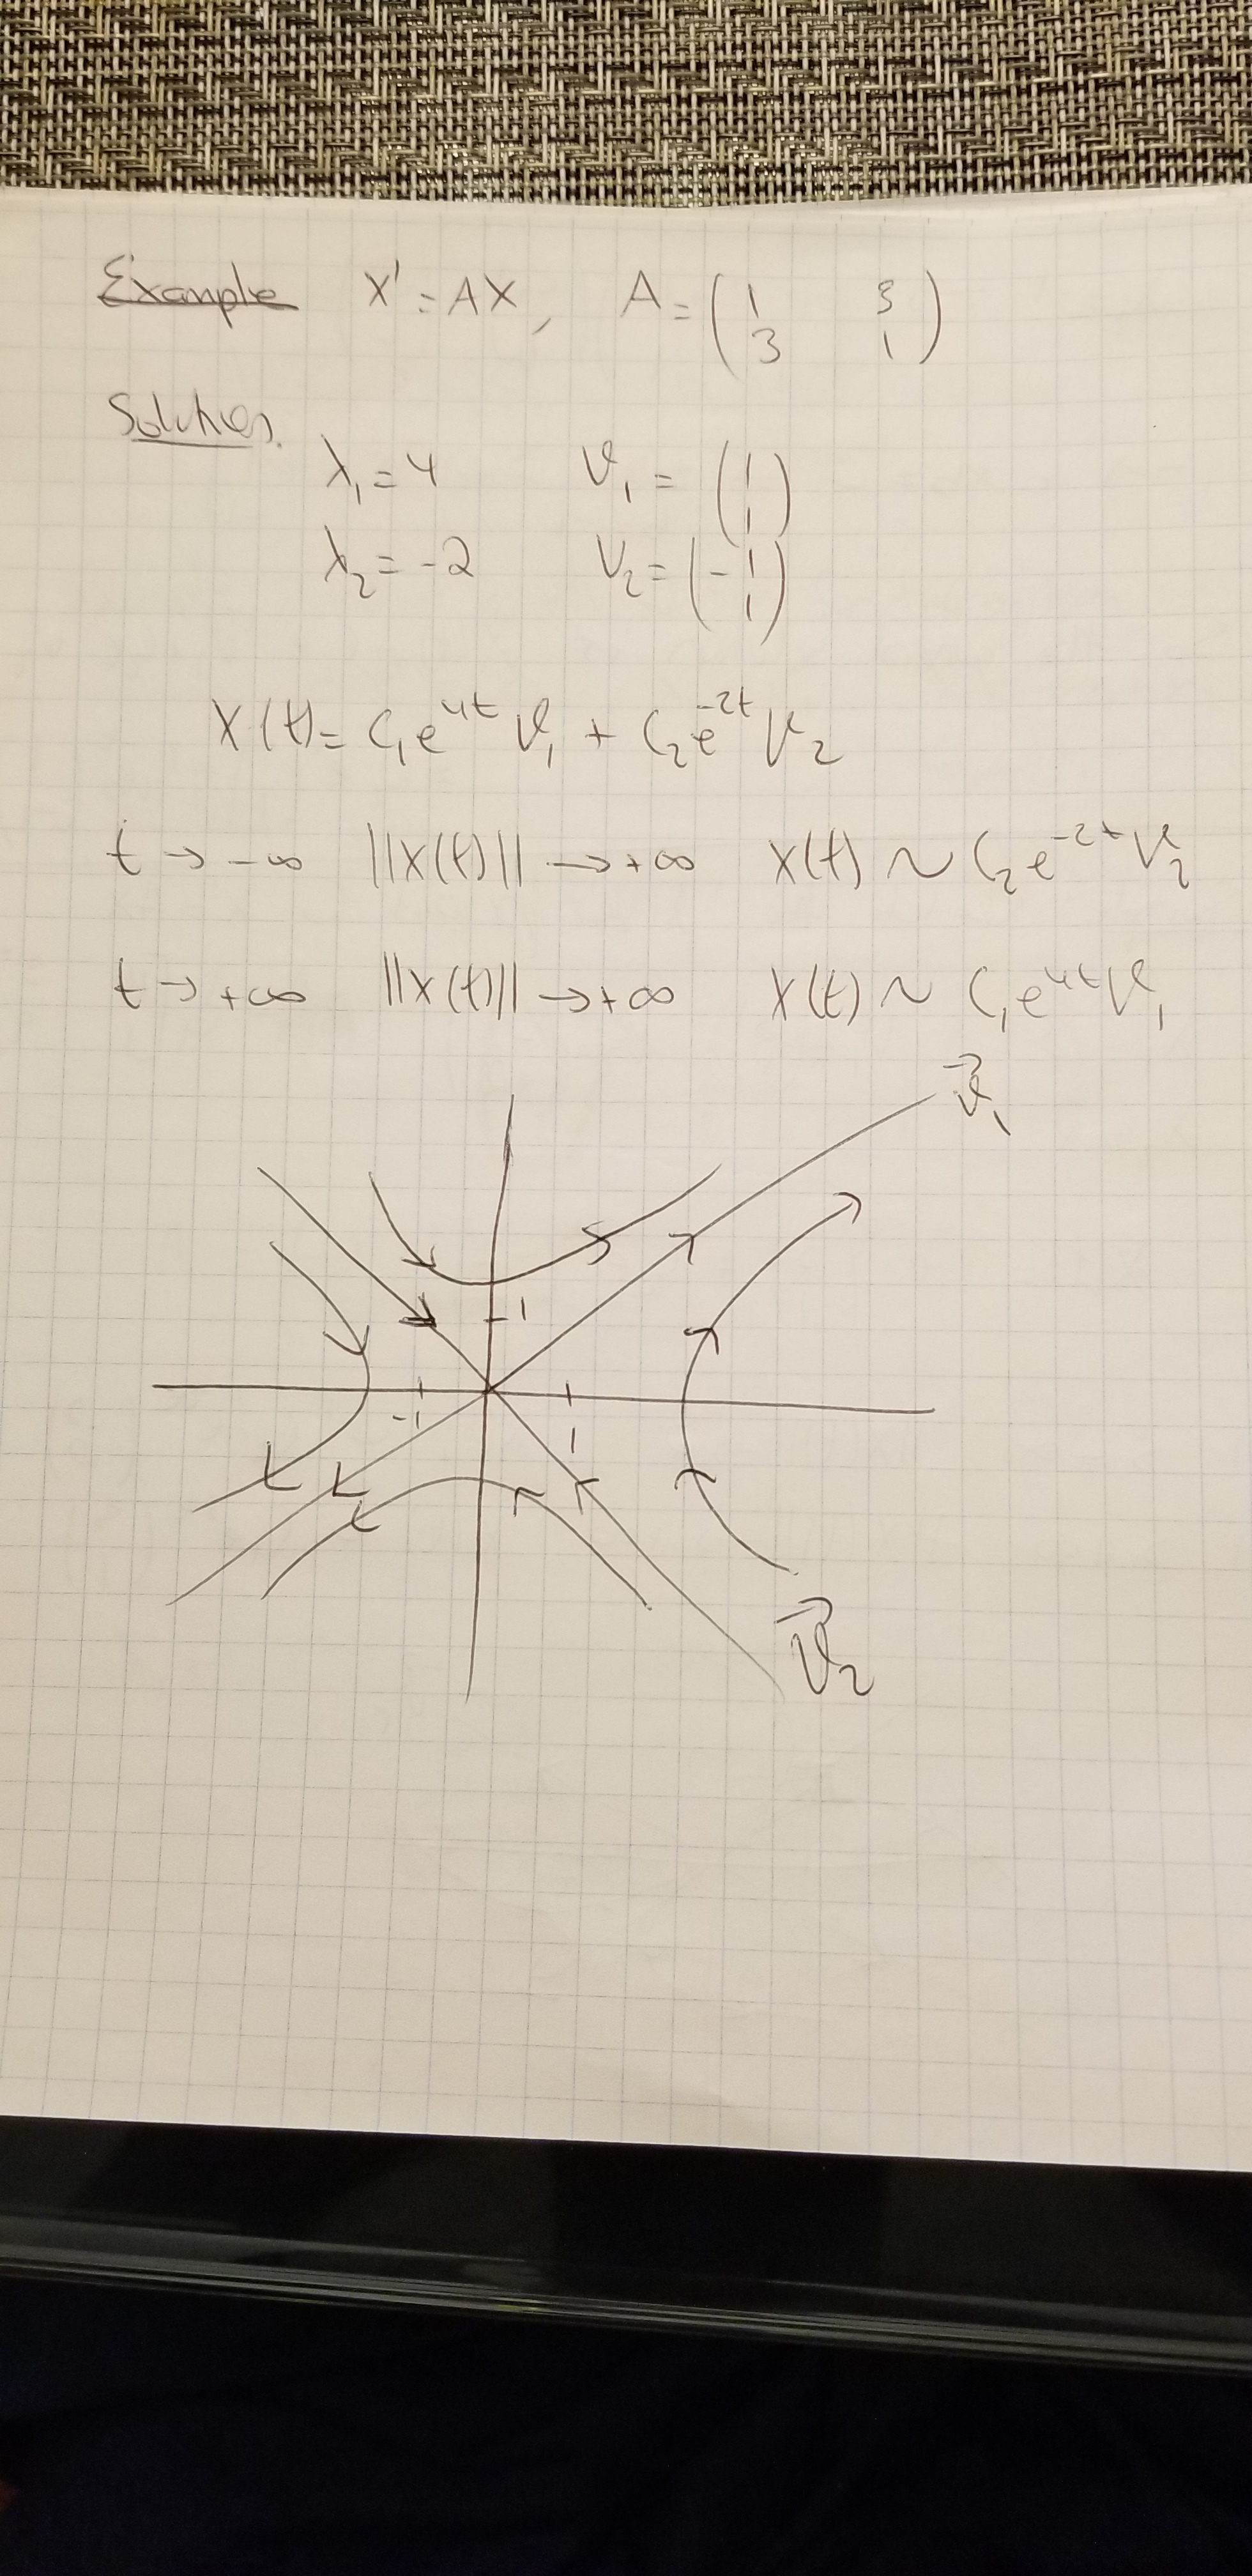 Example X' = AX, A = (1 3
3 1)
Solution.
λ₁ = 4 v₁ = (1
1)
λ₂ = -2 v₂ = (-1
1)
X(t) = C₁e^{4t} v₁ + C₂e^{-2t} v₂
t → -∞ ||X(t)|| → +∞ X(t) ~ C₂e^{-2t} v₂
t → +∞ ||X(t)|| → +∞ X(t) ~ C₁e^{4t} v₁
v⃗₁
1
-1
1
v⃗₂